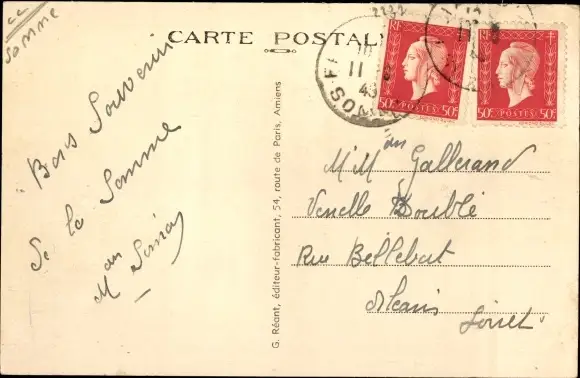 cc
Somme
2232
CARTE POSTALE
RF
50c POSTES 50c
RF
50c POSTES 50c
11 8
45
SOMME
Bons Souvenirs
de la Somme
M an
G. Réant, éditeur-fabricant, 54, route de Paris, Amiens
M M an Gallerand
Venelle Double
Rue Bellebat
Orléans
Loiret